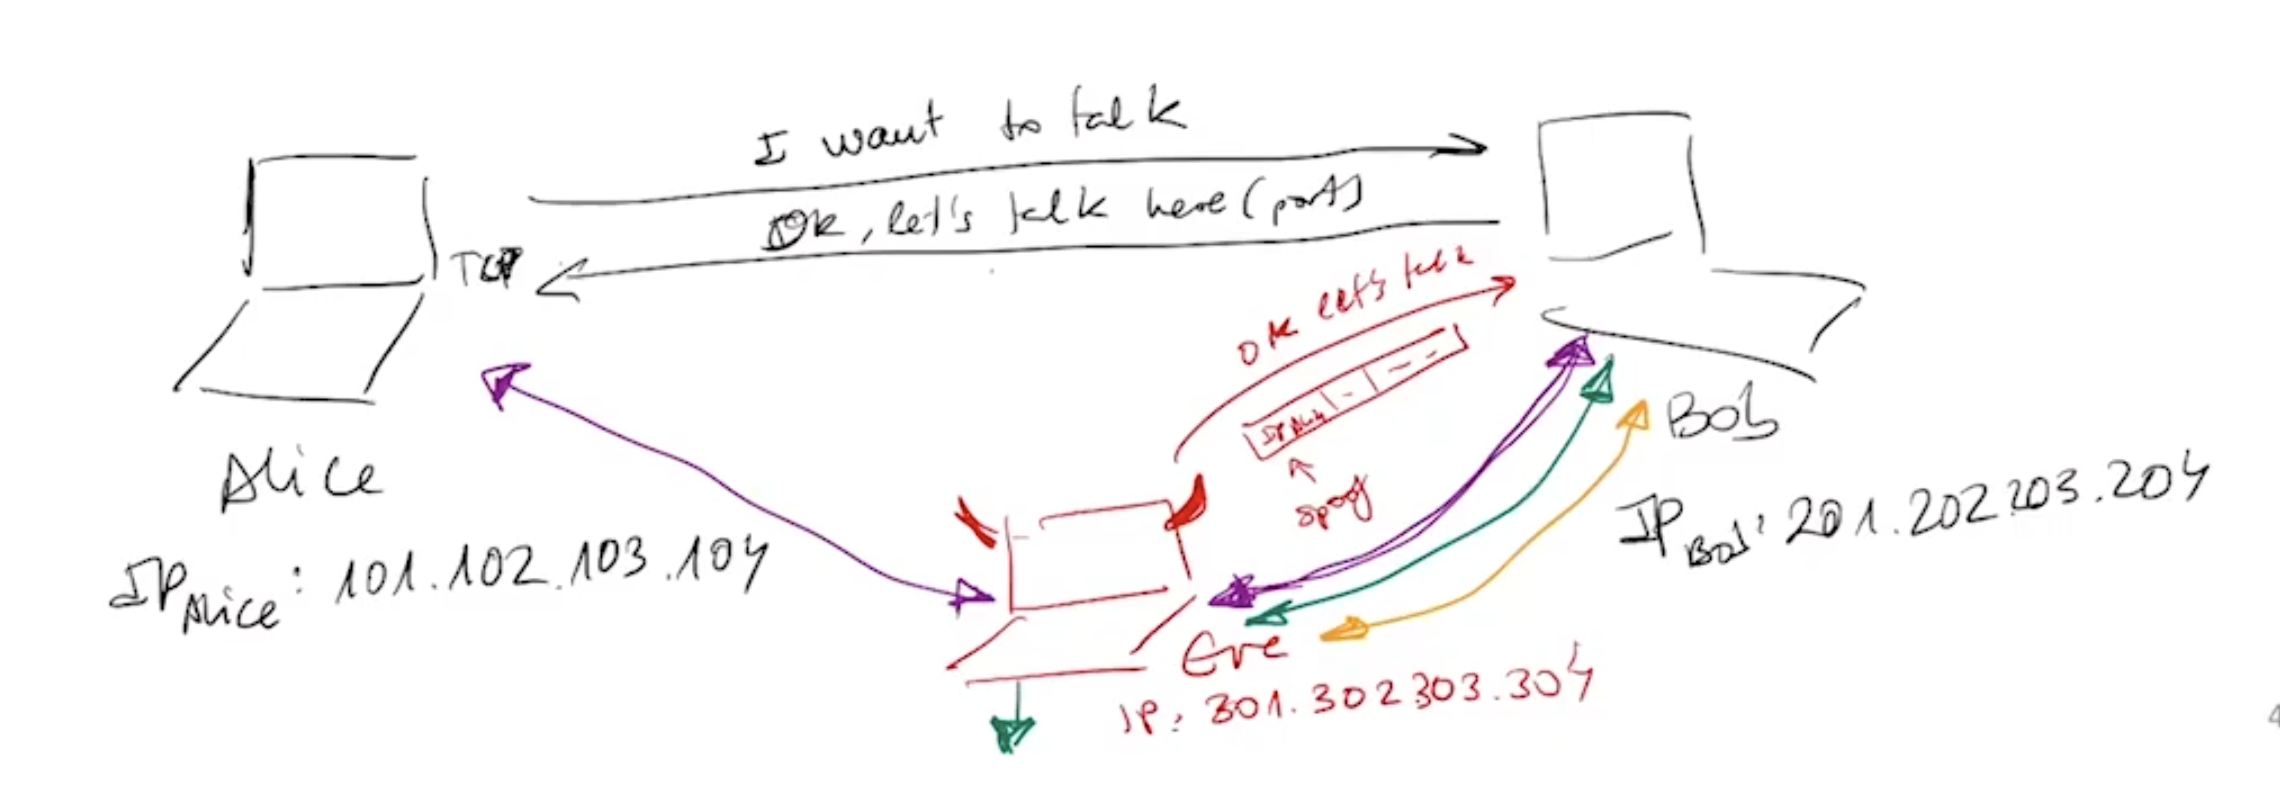 I want to talk
Ok, let's talk here (port)
TCP
OK let's talk
IP Alice | - | - -
spoof
Alice
IP Alice: 101.102.103.104
Bob
IP Bob: 201.202.203.204
Eve
IP: 301.302.303.304
4